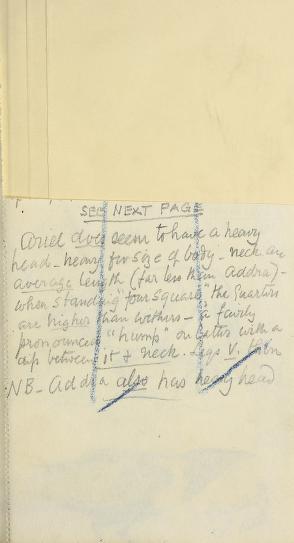 SEE NEXT PAGE
Ariel does seem to have a heavy
head - heavy for size of body - neck an
average length (far less than Addra) -
when standing "four square" the quarters
are higher than withers - a fairly
pronounced "hump" on latter with a
dip between it & neck. Legs V. thin
NB - Addra also has heavy head